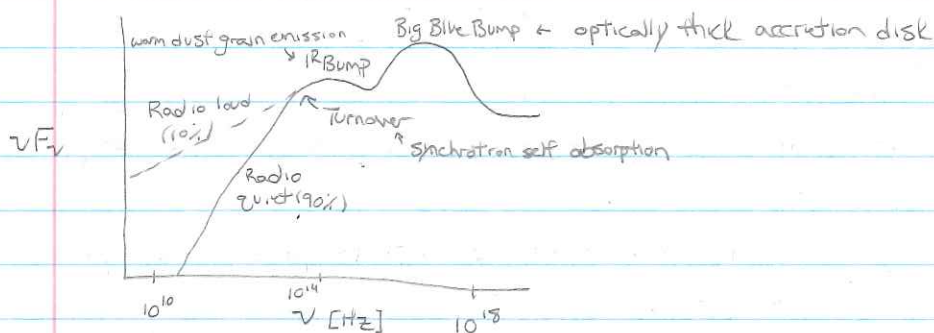 warm dust grain emission
Big Blue Bump ← optically thick accretion disk
IR Bump
Radio loud
(10%)
Turnover
νFν
Synchrotron self absorption
Radio
quiet (90%)
10^10
10^14
10^18
ν [Hz]